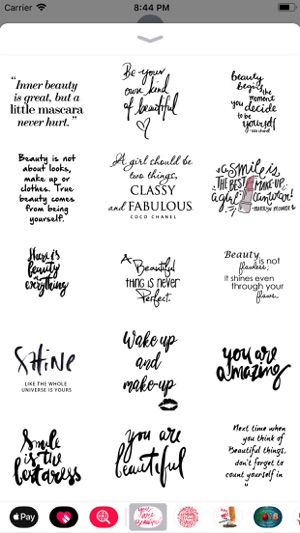 Carrier
8:44 PM
"Inner beauty
is great, but a
little mascara
never hurt."
Be your
own kind
of beautiful
beauty
begins
the
moment
you decide
to be
yourself
Beauty is not
about looks,
make up or
clothes. True
beauty comes
from being
yourself.
A girl should be
two things,
CLASSY
and FABULOUS
COCO CHANEL
a Smile is
THE BEST MAKE-UP
a girl can wear!
MARILYN MONROE
There is
beauty
in
everything
A
Beautiful
THING IS NEVER
Perfect.
Beauty is not
flawless;
It shines even
through your
flaws.
SHINE
LIKE THE WHOLE
UNIVERSE IS YOURS
Wake up
and
make-up
you are
amazing
Smile
is the
best dress
you are
beautiful
Next time when
you think of
Beautiful things,
don't forget to
count yourself in
Pay